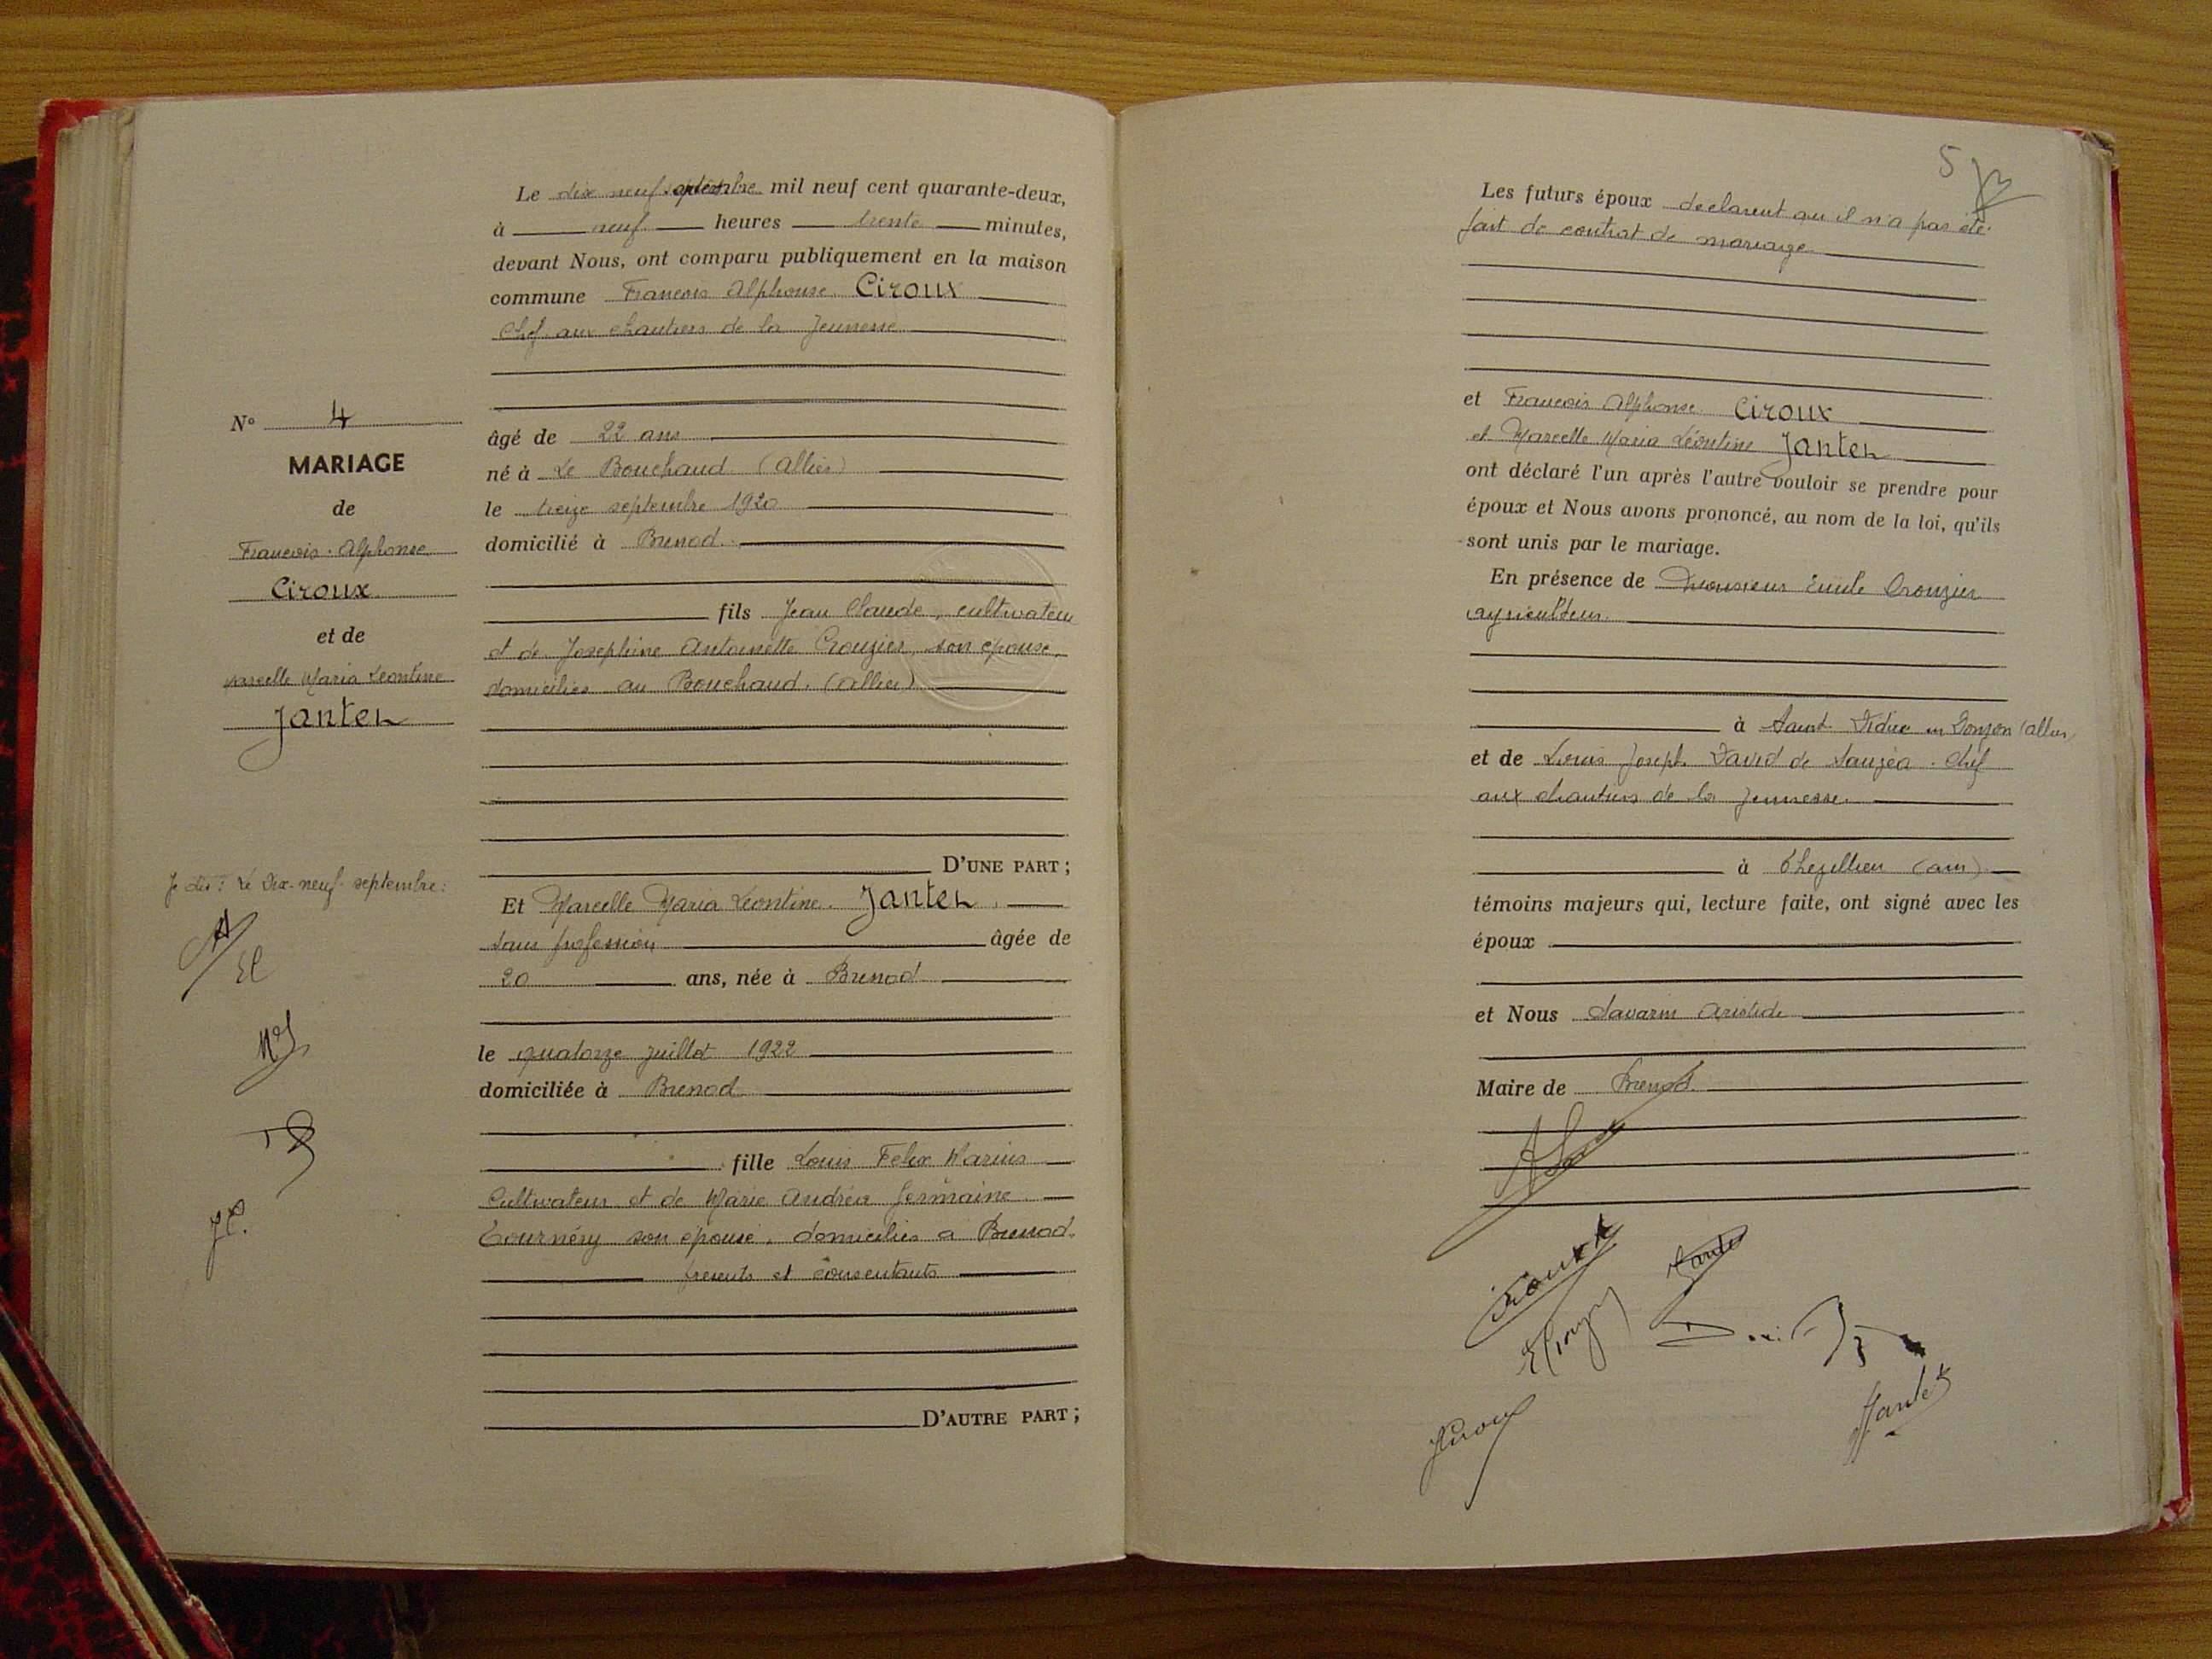 Le dix neuf septembre mil neuf cent quarante-deux,
à neuf heures trente minutes,
devant Nous, ont comparu publiquement en la maison
commune Francois Alphonse Ciroux
Chef aux chantiers de la Jeunesse
âgé de 22 ans
né à Le Bouchaud (Allier)
le treize septembre 1920
domicilié à Brenod.
fils Jean Claude, cultivateur
et de Josephine Antoinette Crouzier, son épouse,
domiciliés au Bouchaud. (Allier)
D'UNE PART ;
N° 4
MARIAGE
de
Francois. Alphonse
Ciroux
et de
Marcelle Maria Leontine
Janten
Je dis : Le Dix-neuf septembre :
EC
MJ
JC.
Et Marcelle Maria Leontine. Janten,
sans profession âgée de
20 ans, née à Brenod
le quatorze juillet 1922
domiciliée à Brenod
fille Louis Felix Marius
Cultivateur et de Marie Andréa Germaine
Tournéry son épouse, domiciliés a Brenod.
présents et consentants
D'AUTRE PART ;
5
Les futurs époux declarent qu'il n'a pas été
fait de contrat de mariage.
et Francois Alphonse Ciroux
et Marcelle Maria Léontine Janten
ont déclaré l'un après l'autre vouloir se prendre pour
époux et Nous avons prononcé, au nom de la loi, qu'ils
sont unis par le mariage.
En présence de Monsieur Emile Crouzier
agriculteur.
à Saint Didier en Donjon (Allier)
et de Louis Joseph David de Sauzéa. Chef
aux chantiers de la Jeunesse.
à Thezillieu (Ain)
témoins majeurs qui, lecture faite, ont signé avec les
époux
et Nous Savarin Aristide
Maire de Brenod.
Ciroux